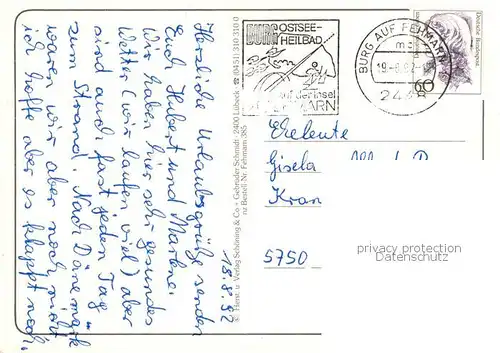 Herzliche Urlaubsgrüße senden
Euch Hubert und Marlene.
Wir haben hier sehr gesundes
Wetter (wir laufen viel) aber
sind auch fast jeden Tag
zum Strand. Nach Dänemark
waren wir aber noch nicht
ich hoffe aber es klappt noch.
18.8.92
© Themt. u. Verlag Schöning & Co + Gebrüder Schmidt · 2400 Lübeck · 0451/310 331 0
nz Bestell Nr. Fehmarn 385
BURG OSTSEE-
HEILBAD
auf der Insel
FEHMARN
BURG AUF FEHMARN
19.-8.92
Deutsche Bundespost
60
Eheleute
Gisela
Kran
5750
privacy protection
Datenschutz